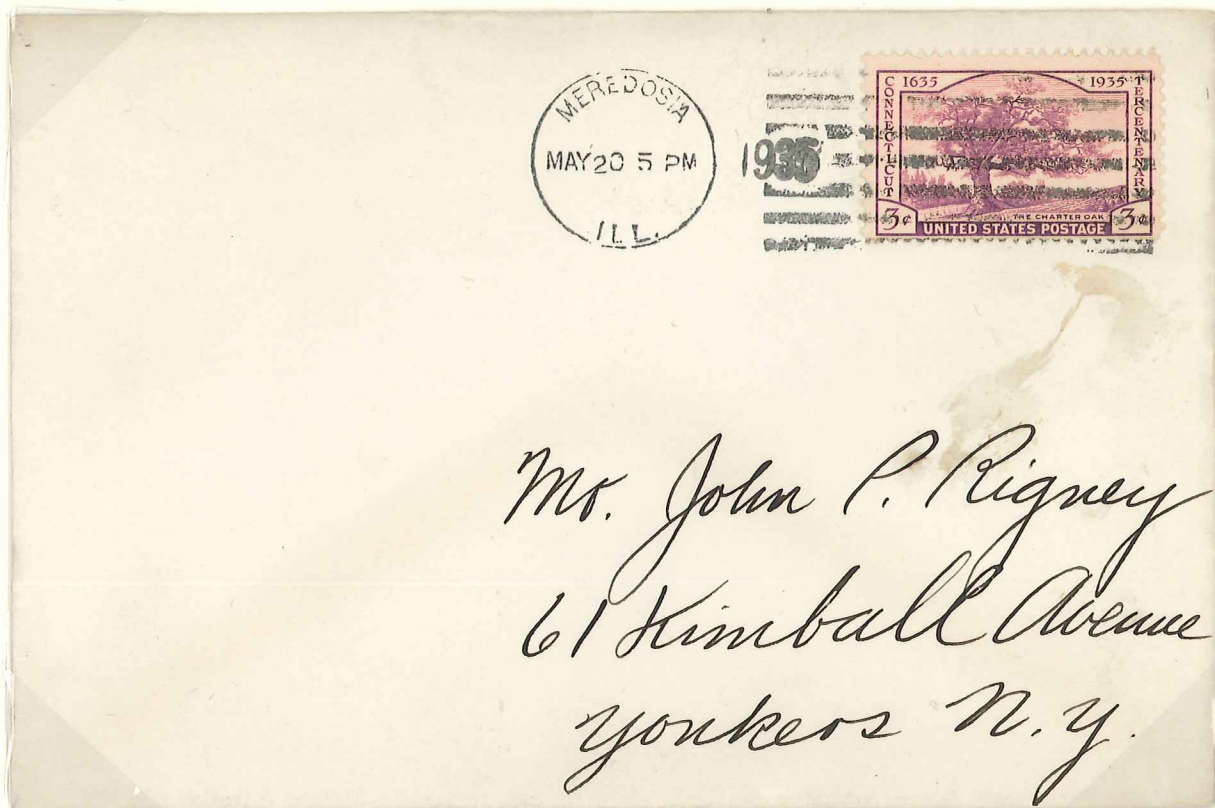 MEREDOSIA
MAY 20 5 PM
ILL.
1935
CONNECTICUT
1635
1935
TERCENTENARY
THE CHARTER OAK
3¢
UNITED STATES POSTAGE
3¢
Mr. John P. Rigney
61 Kimball Avenue
Yonkers N.Y.